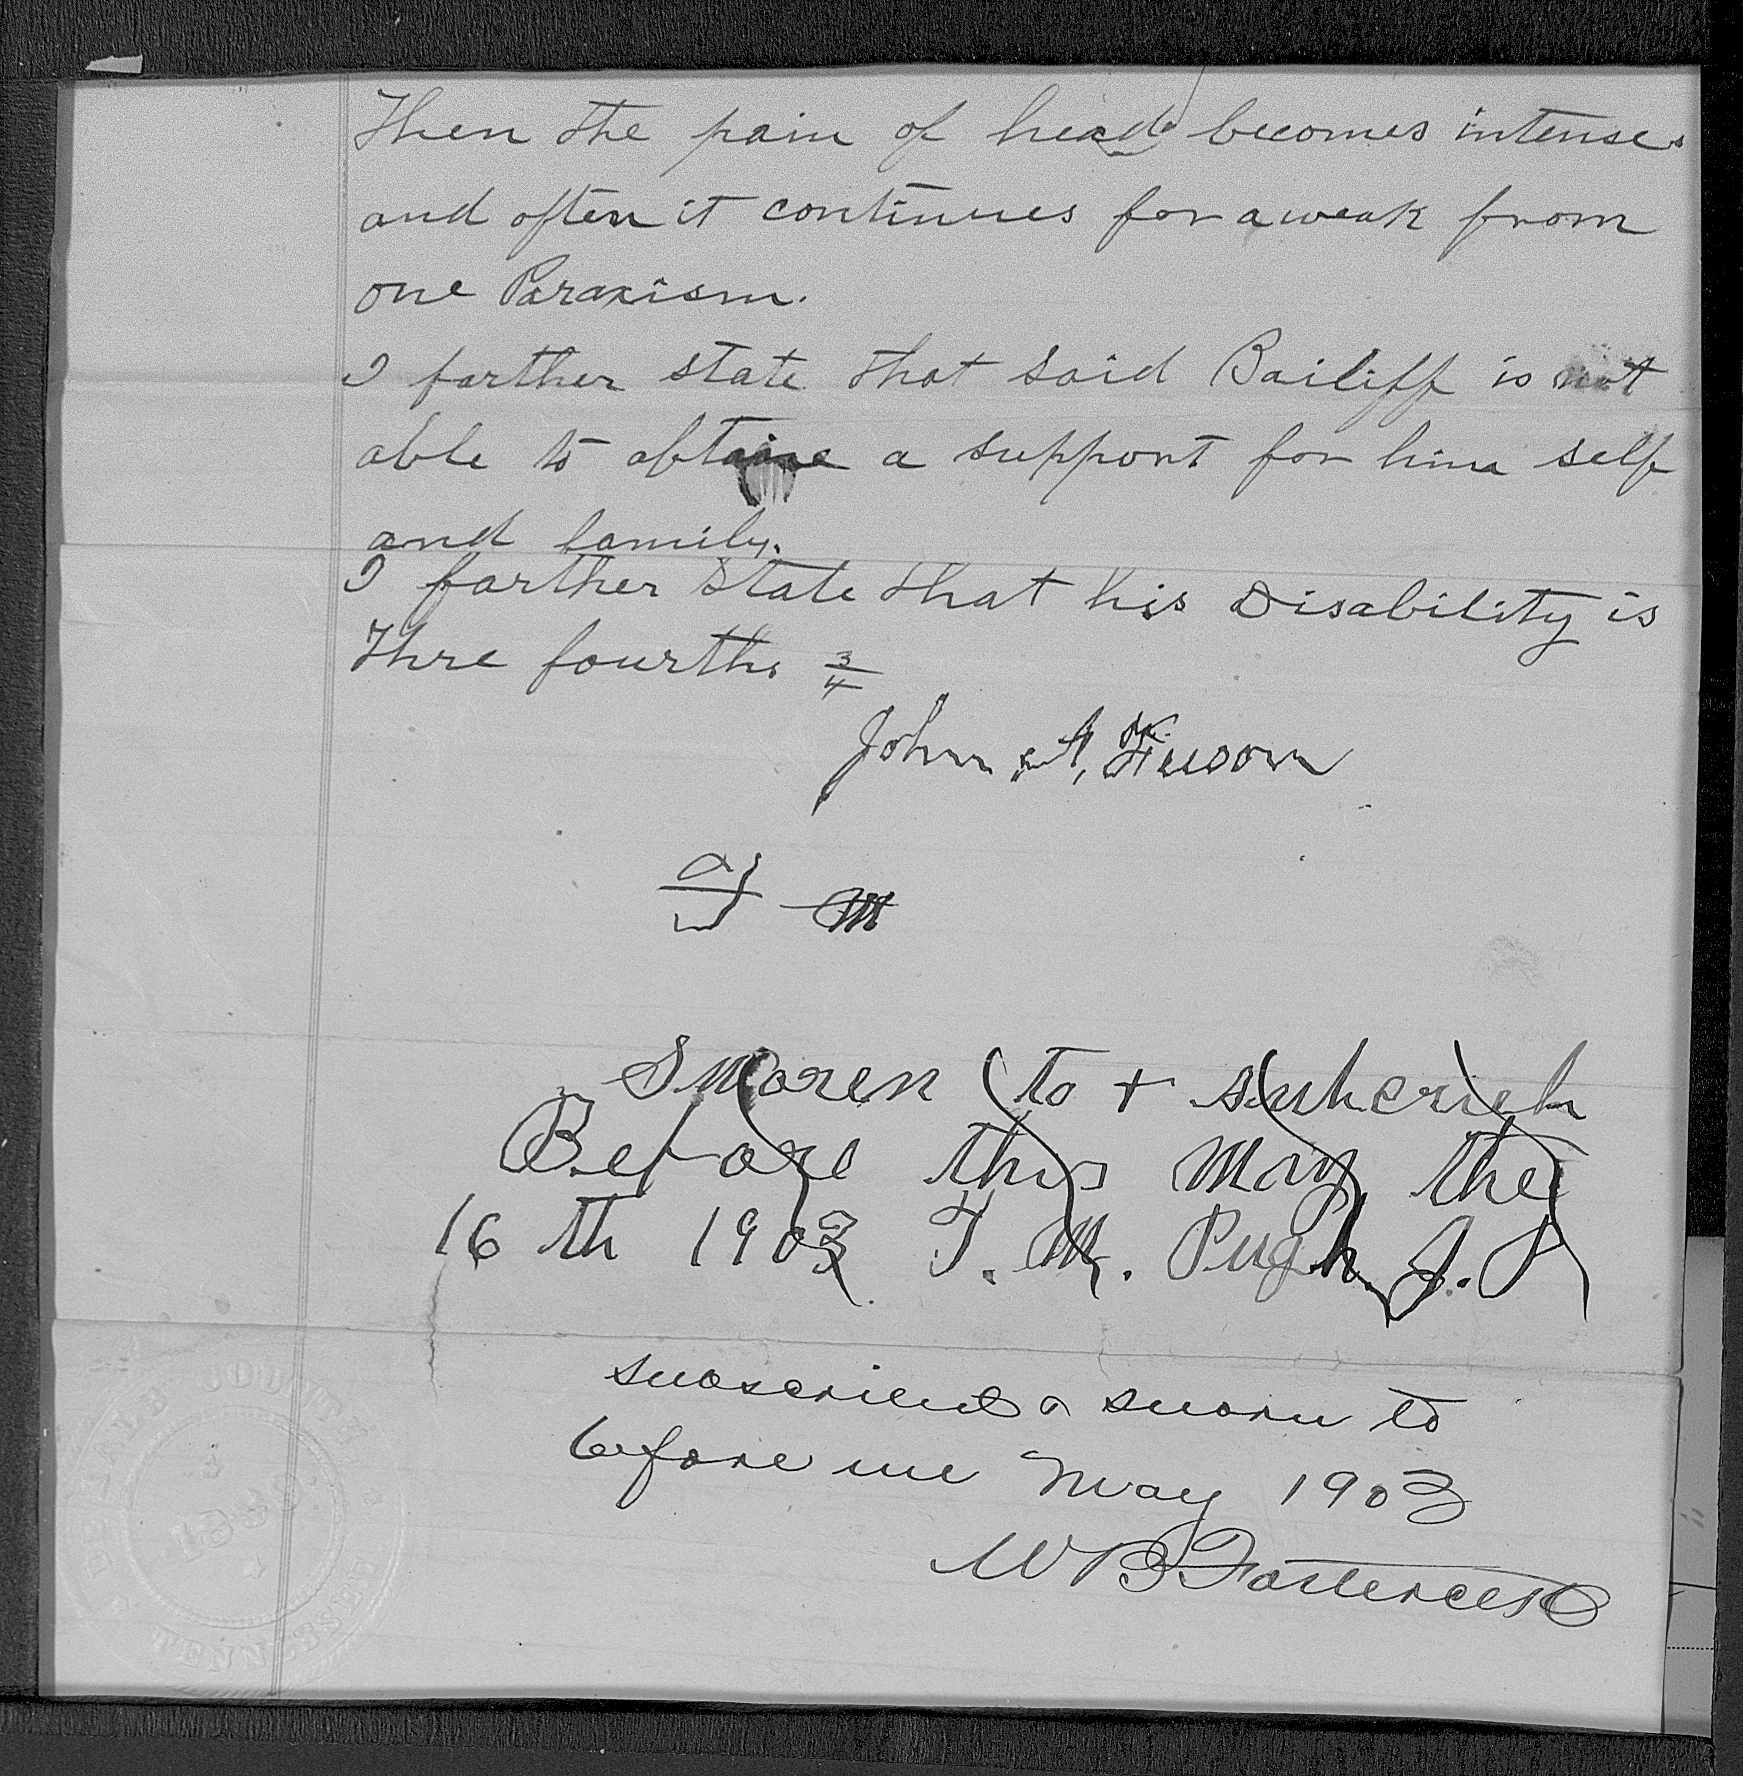 Then the pain of head becomes intense
and often it continues for a weak from
one Paraxism.
I farther state that said Bailiff is not
able to obtaine a support for him self
and family.
I farther State that his Disability is
Thre fourths 3/4
John A. Fuson
Sworen to + subcrieb
Before this May the
16 th 1903 T. M. Pugh J. P
subscribed & sworn to
before me May 1903
W B
DEKALB COUNTY
TENNESSEE